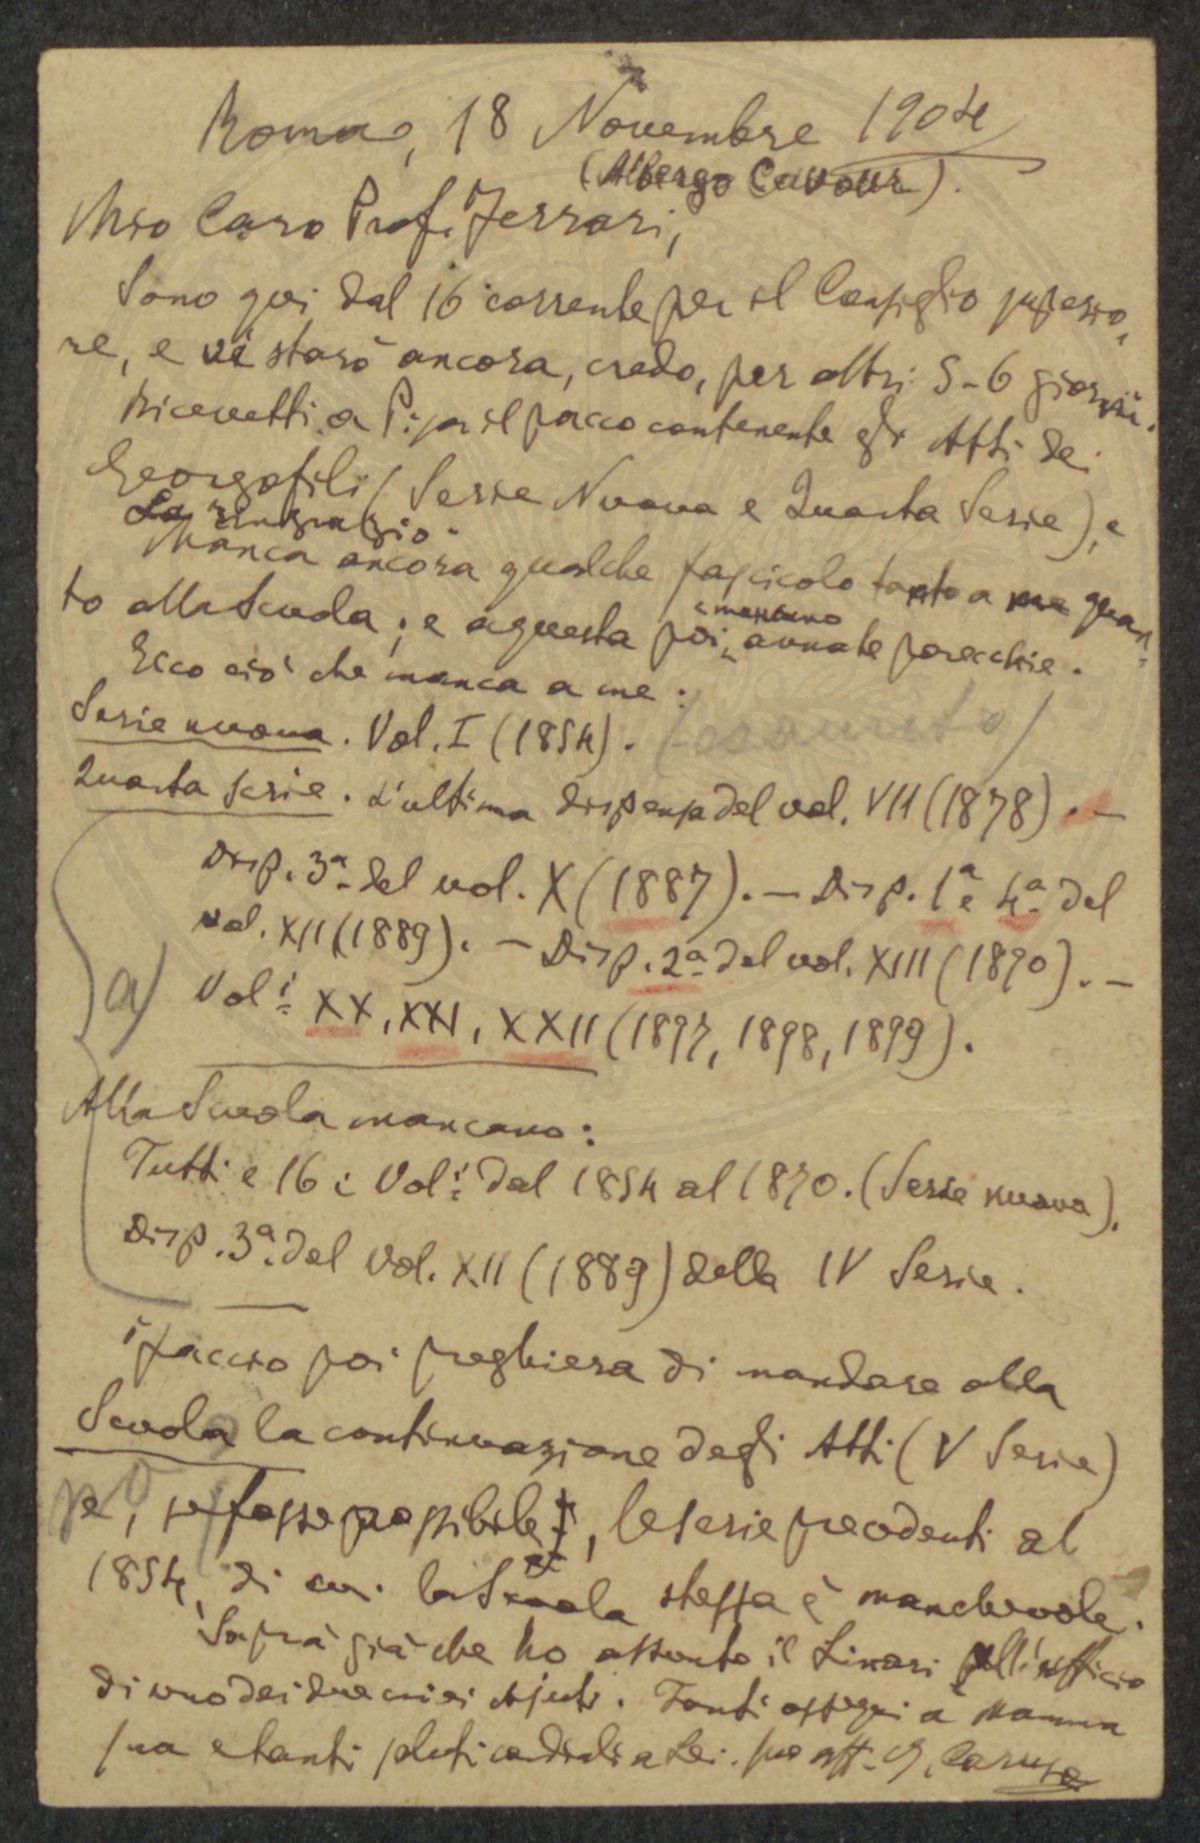 Roma, 18 Novembre 1904
(Albergo Cavour).
Mio Caro Prof. Ferrari,
Sono qui dal 16 corrente per il Consiglio superio-
re, e vi starò ancora, credo, per altri 5-6 giorni.
Ricevetti a Pisa il pacco contenente gli Atti dei
Georgofili (Serie Nuova e Quarta Serie), e
La ringrazio.
Manca ancora qualche fascicolo tanto a me quan-
to alla Scuola; e a questa poi, mancano annate parecchie.
Ecco ciò che manca a me:
Serie nuova. Vol. I (1854). (esaurito)
Quarta serie. L'ultima dispensa del vol. VII (1878). —
Disp. 3ª del vol. X (1887). — Disp. 1ª e 4ª del
vol. XII (1889). — Disp. 2ª del vol. XIII (1890). —
Vol.i XX, XXI, XXII (1897, 1898, 1899).
a)
Alla Scuola mancano:
Tutti e 16 i Vol.i dal 1854 al 1870. (Serie nuova).
Disp. 3ª del Vol. XII (1889) della IV Serie.
Faccio poi preghiera di mandare alla
Scuola la continuazione degli Atti (V Serie)
e, se fosse possibile, le serie precedenti al
1854, di cui la Scuola stessa è manchevole.
Saprà già che ho assunto il Linari all'ufficio
di uno dei due miei Ajuti. Tanti ossequi a Mamma
sua e tanti saluti cordiali a Lei. Suo aff. G. Caruso